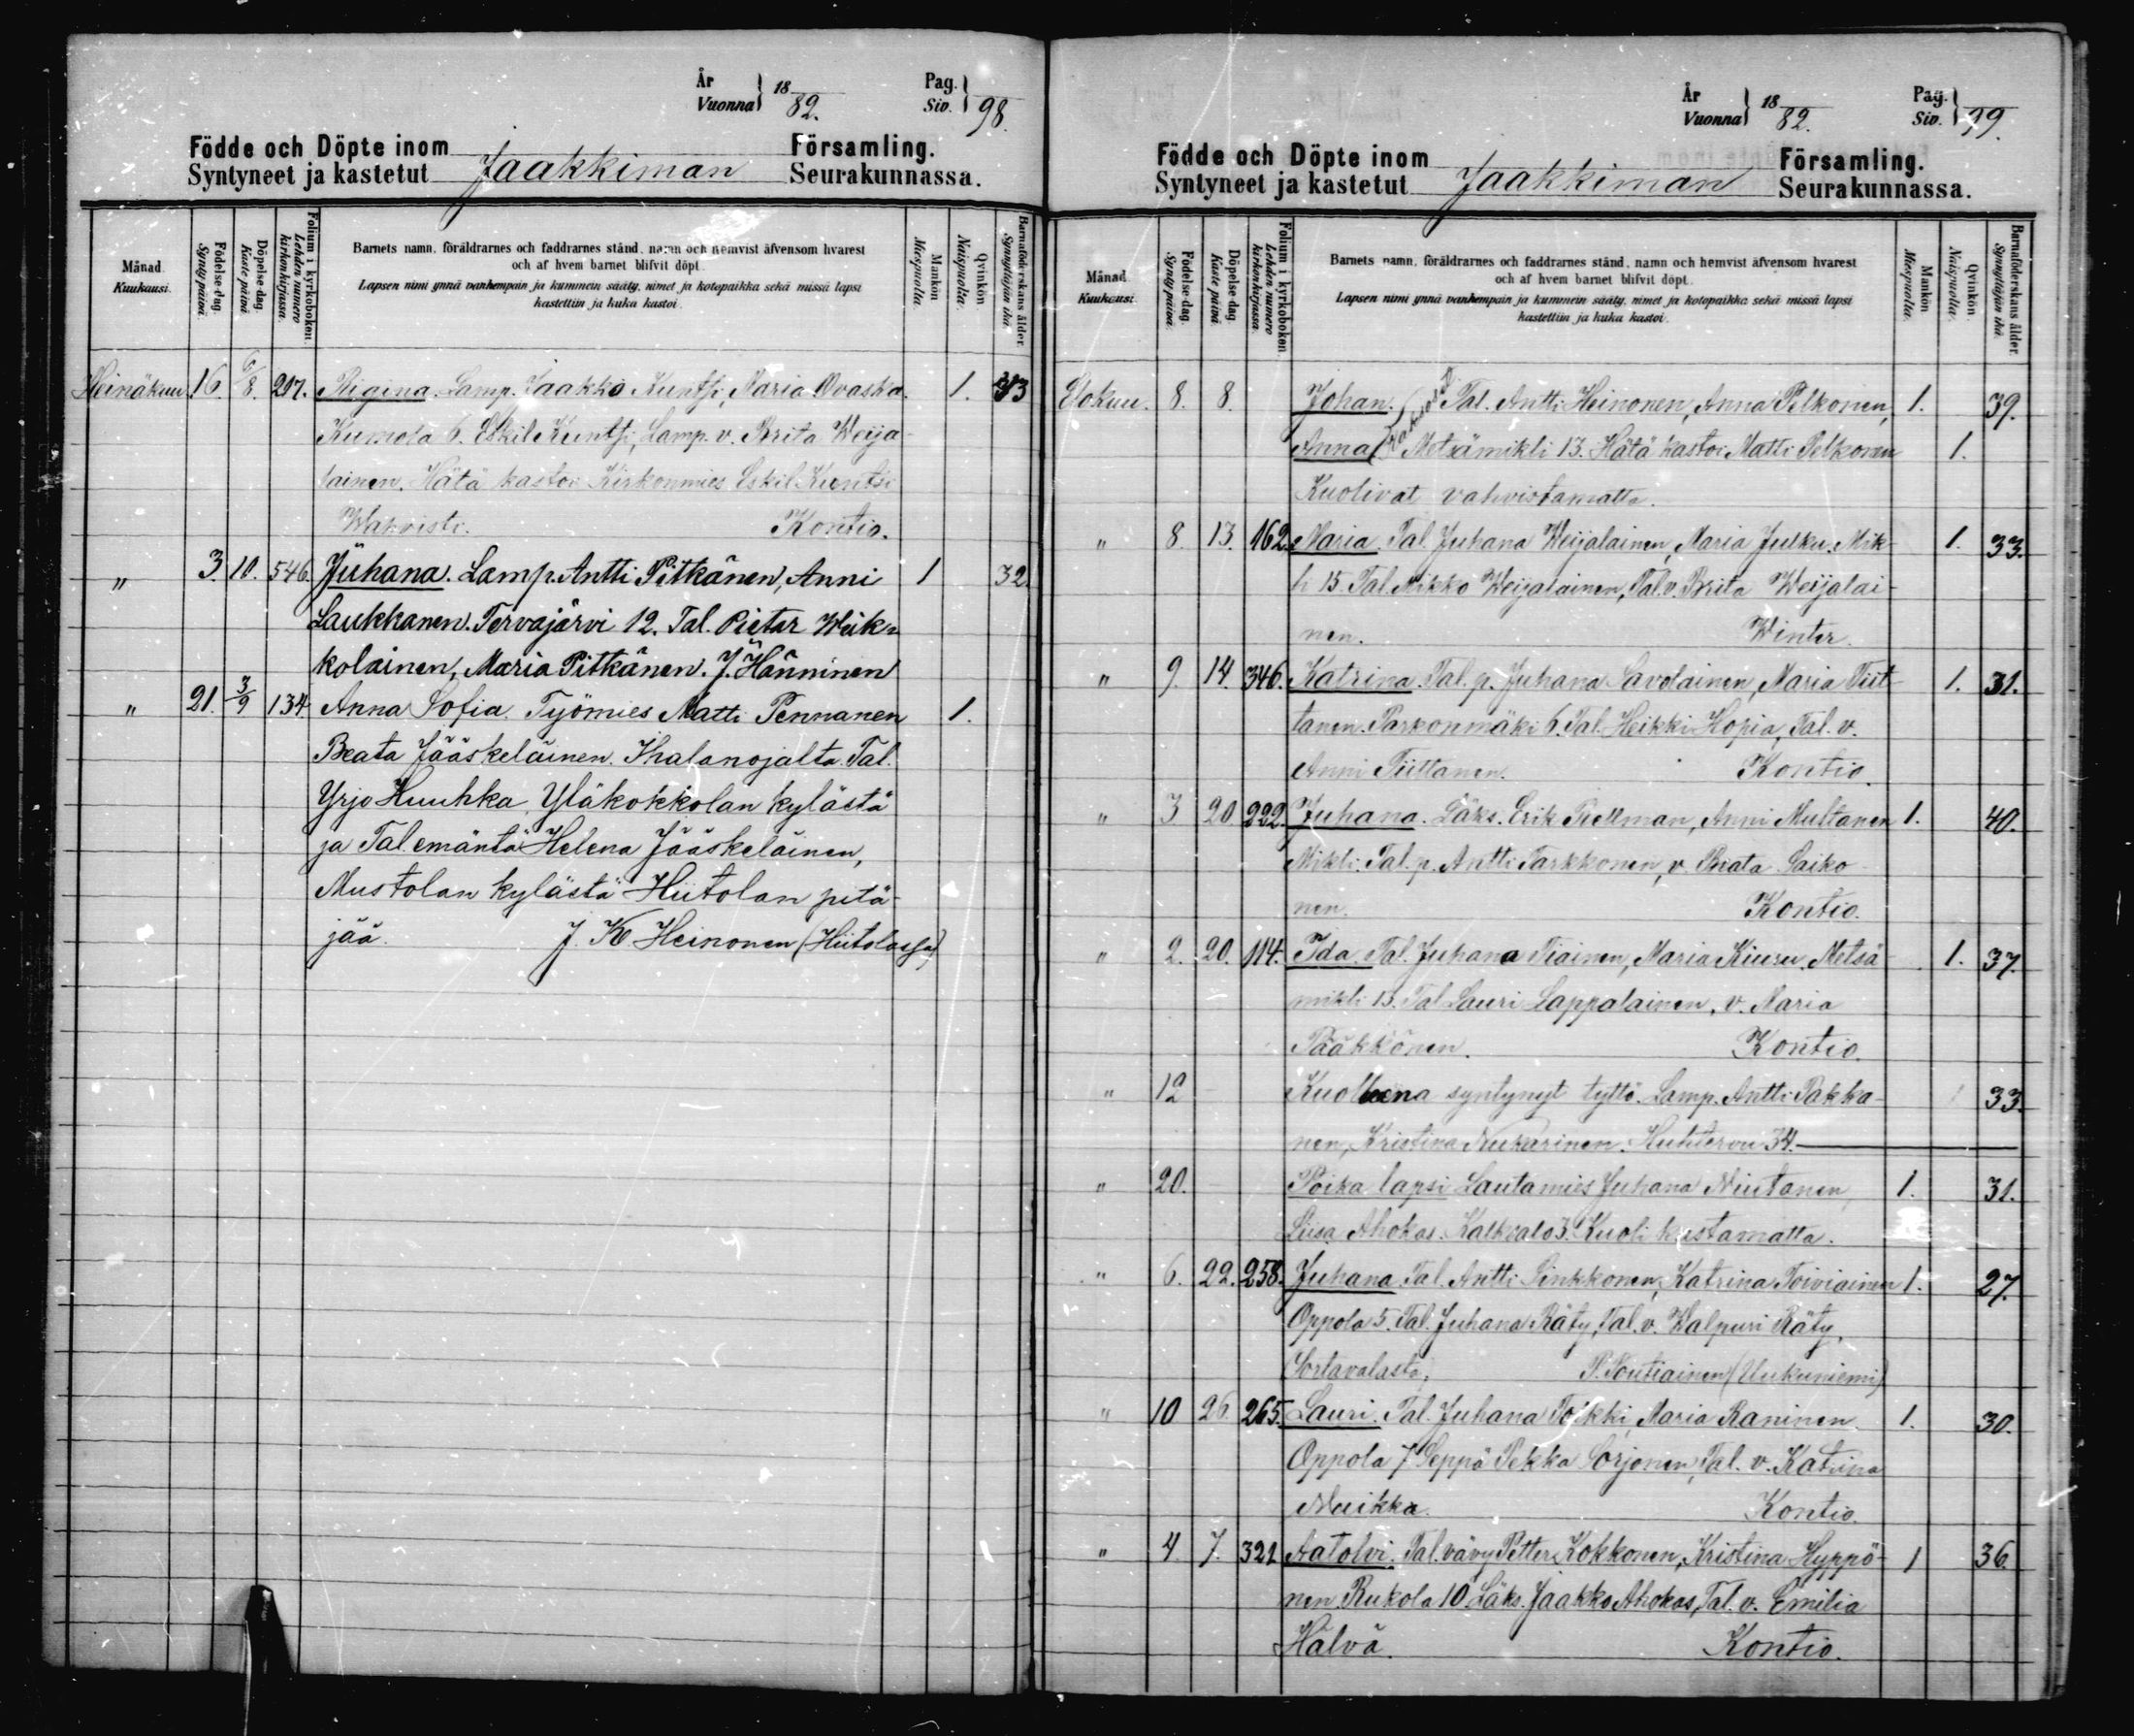 År
Vuonna } 18 82.
Pag.
Siv. } 98.
Födde och Döpte inom
Syntyneet ja kastetut Jaakkiman Församling.
Seurakunnassa.
Månad.
Kuukausi.
Födelse-dag.
Synty päivä.
Döpelse-dag.
Kaste päivä.
Folium i kyrkoboken.
Lehden numero kirkonkirjassa.
Barnets namn, föräldrarnes och faddrarnes stånd, namn och hemvist äfvensom hvarest
och af hvem barnet blifvit döpt.
Lapsen nimi ynnä vanhempain ja kummein sääty, nimet ja kotopaikka sekä missä lapsi
kastettiin ja kuka kastoi.
Mankön
Miespuolia.
Qvinkön
Naispuolia.
Barnaföderskans ålder.
Synnyttäjän ikä.
Heinäkuu. 16. 6/8. 207. Rigina. Lamp. Jaakko Kuntsi, Maria Ovaska. 1. 33
Kumola 6. Eskil Kuntsi, Lamp. v. Brita Weija-
lainen. Hätä kastoi Kirkonmies Eskil Kuntsi
Wahvisti. Kontio.
" 3. 10. 546. Juhana. Lamp. Antti Pitkänen, Anni 1 32.
Laukkanen. Tervajärvi 12. Tal. Pietar Weik-
kolainen, Maria Pitkänen. J. Hänninen
" 21. 3/9 134 Anna Sofia. Työmies Matti Pennanen 1.
Beata Jääskeläinen. Ihalanojalta. Tal.
Yrjo Huuhka Yläkokkolan kylästä
ja Tal emäntä Helena Jääskeläinen,
Mustolan kylästä Hiitolan pitä-
jää. J. K Heinonen (Hiitolassa)
År
Vuonna } 18 82.
Pag.
Siv. } 99.
Födde och Döpte inom
Syntyneet ja kastetut Jaakkiman Församling.
Seurakunnassa.
Månad.
Kuukausi.
Födelse-dag.
Synty päivä.
Döpelse-dag.
Kaste päivä.
Folium i kyrkoboken.
Lehden numero kirkonkirjassa.
Barnets namn, föräldrarnes och faddrarnes stånd, namn och hemvist äfvensom hvarest
och af hvem barnet blifvit döpt.
Lapsen nimi ynnä vanhempain ja kummein sääty, nimet ja kotopaikka sekä missä lapsi
kastettiin ja kuka kastoi.
Mankön
Miespuolia.
Qvinkön
Naispuolia.
Barnaföderskans ålder.
Synnyttäjän ikä.
Elokuu. 8. 8. Johan. Tal. Antti Heinonen, Anna Pelkonen, 1. 39.
Anna Metsämikli 13. Hätä kastoi Matti Pelkonen 1.
Kuolivat vahvistamatta.
" 8. 13. 162. Maria. Tal. Juhana Weijalainen, Maria Julku. Mik- 1. 33.
li 15. Tal. Mikko Weijalainen, Tal. v. Brita Weijalai-
nen. Winter.
" 9. 14. 346. Katrina. Tal. p. Juhana Savolainen, Maria Tiit- 1. 31.
tanen. Parkonmäki 6. Tal. Heikki Hopia, Tal. v.
Anni Tiittanen. Kontio.
" 3 20. 222. Juhana. Läks. Erik Rellman, Anni Multanen 1. 40.
Mikli. Tal. p. Antti Tarkkonen, v. Beata Saiko-
nen. Kontio.
" 2. 20. 114. Ida. Tal. Juhana Tiainen, Maria Kiuru. Metsä- 1. 37.
mikli 13. Tal Lauri Lappalainen, v. Maria
Pääkkönen. Kontio.
" 12 Kuolleena syntynyt tyttö. Lamp. Antti Pakka- 1 33.
nen, Kristina Nukarinen. Huhtervu 34.
" 20. Poika lapsi Lautamies Juhana Niutanen, 1. 31.
Liisa Ahokas. Kalkvalo 3. Kuoli kastamatta.
" 6. 22. 258. Juhana. Tal. Antti Sinkkonen, Katrina Toiviainen 1. 27.
Oppola 5. Tal. Juhana Räty, Tal. v. Walpuri Räty,
Sortavalasta, P. Poutiainen (Uukuniemi)
" 10 26. 265. Lauri. Tal. Juhana Toikki, Maria Raninen. 1. 30.
Oppola 7 Seppä Pekka Sorjonen, Tal. v. Katrina
Muikka. Kontio.
" 4. 7. 321 Aatolvi. Tal. vävy Petter Kokkonen, Kristina Hyppö- 1 36.
nen. Rukola 10 Läks. Jaakko Ahokas, Tal. v. Emilia
Hälvä. Kontio.